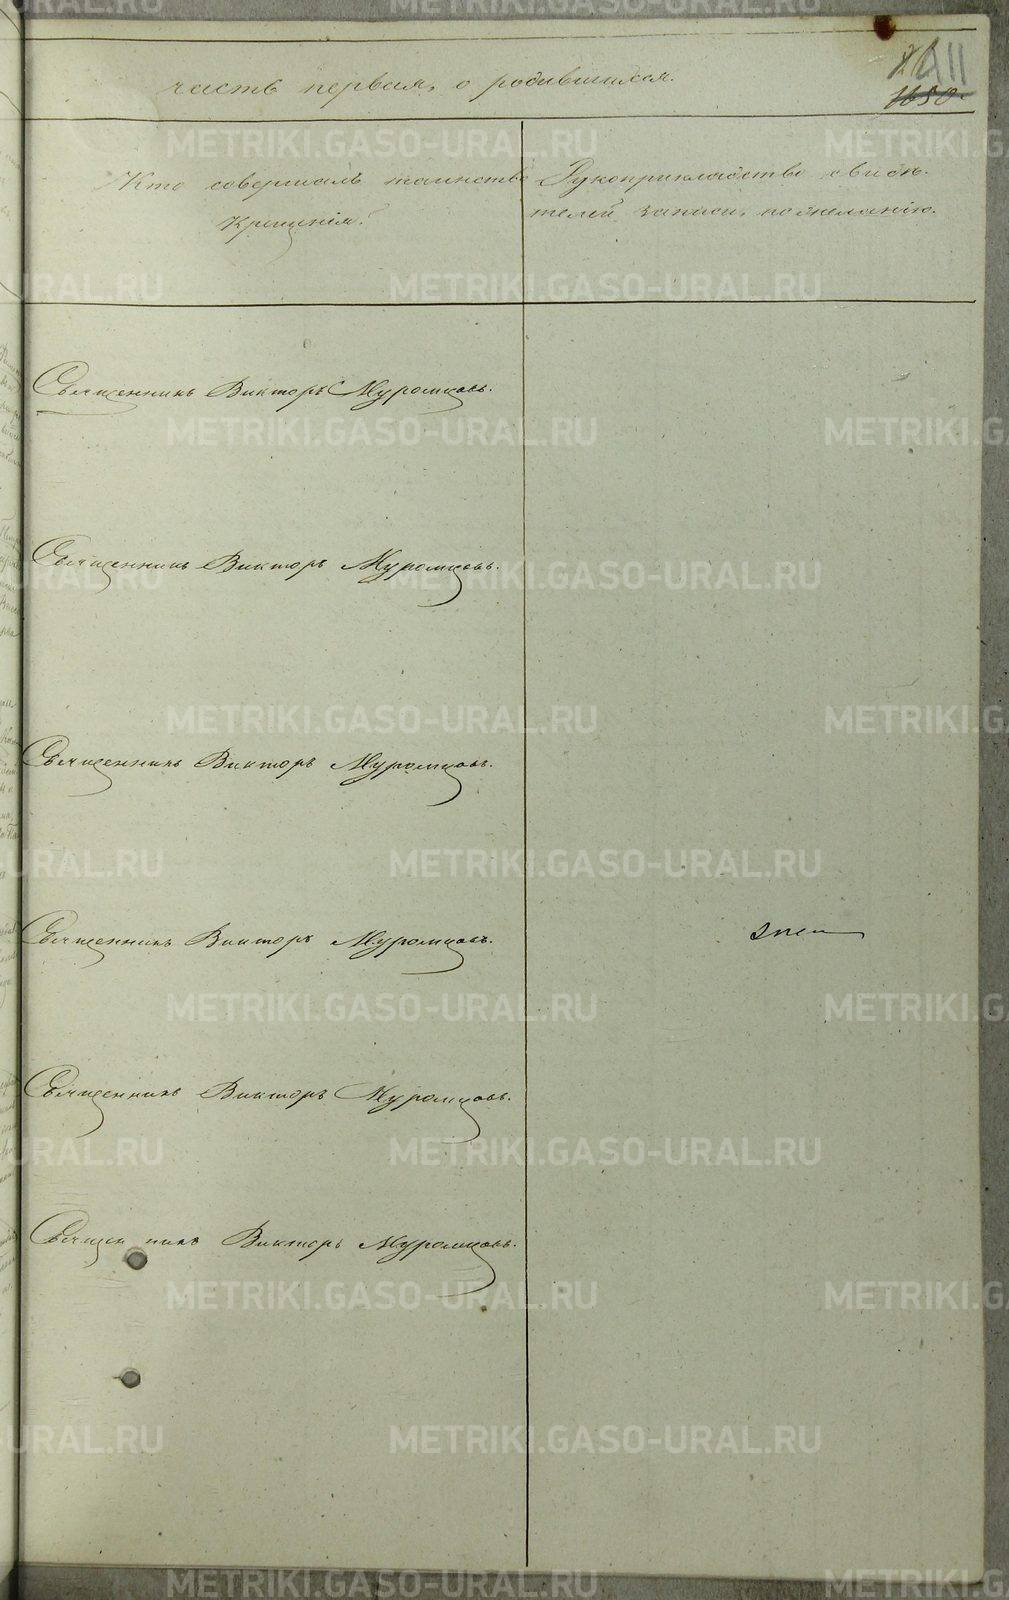 часть первая, о родившихся.
11
1650
Кто совершалъ таинство
Крещенія.
Рукоприкладство свидѣ-
телей записи, по желанію.
Священникъ Викторъ Муромцовъ.
Священникъ Викторъ Муромцовъ.
Священникъ Викторъ Муромцовъ.
Священникъ Викторъ Муромцовъ.
Священникъ Викторъ Муромцовъ.
Священникъ Викторъ Муромцовъ.
METRIKI.GASO-URAL.RU